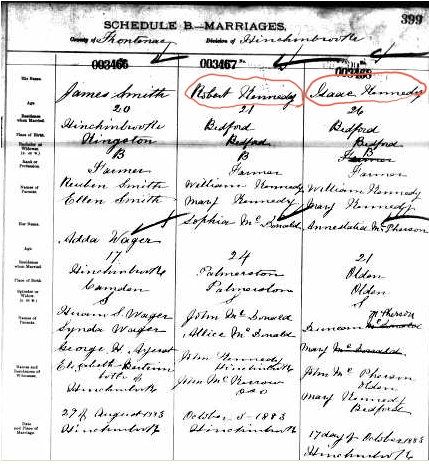 399
SCHEDULE B.—MARRIAGES.
County of Frontenac Division of Hinchinbrooke
003466 003467 No.
His Name. James Smith Robert Kennedy Isaac Kennedy
Age 20 21 26
Residence when Married Hinchinbrooke Bedford Bedford
Place of Birth. Kingston Bedford Bedford
Bachelor or Widower B B B
Rank or Profession Farmer Farmer Farmer
Names of Parents Reuben Smith William Kennedy William Kennedy
Ellen Smith Mary Kennedy Mary Kennedy
Her Name. Adda Wager Sophia McDonald Annestatia McPherson
Age 17 24 21
Residence when Married Hinchinbrooke Palmerston Olden
Place of Birth Camden Palmerston Olden
Spinster or Widow S S S
Names of Parents Hiram S. Wager John McDonald Duncan McPherson
Synda Wager Allice McDonald Mary McDonald
Names and Residences of Witnesses George H. Ayerst John Kennedy John McPherson
Elizabeth Hinchinbrooke Olden
both of John Mary Kennedy
Hinchinbrooke Bedford
Date and Place of Marriage. 29 of August 1883 October 5 1883 17 day of October 1883
Hinchinbrooke Hinchinbrooke Hinchinbrooke